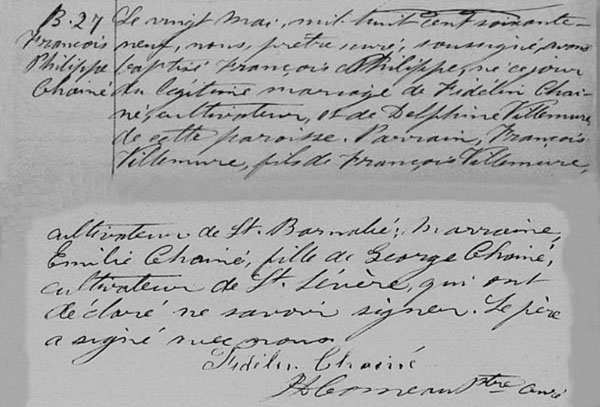 B. 27
François
Philippe
Chainé
Le vingt mai, mil huit cent soixante-
neuf, nous, prêtre curé, soussigné, avons
baptisé François Philippe, né ce jour
du légitime mariage de Fidélin Chai-
né, cultivateur, et de Delphine Villemure
de cette paroisse. Parrain, François
Villemure, fils de François Villemure,
cultivateur de St. Barnabé; Marraine,
Emilie Chainé, fille de George Chainé,
cultivateur de St. Sévère, qui ont
déclaré ne savoir signer. Le père
a signé avec nous.
Fidélin Chainé
Comeau Ptre Curé